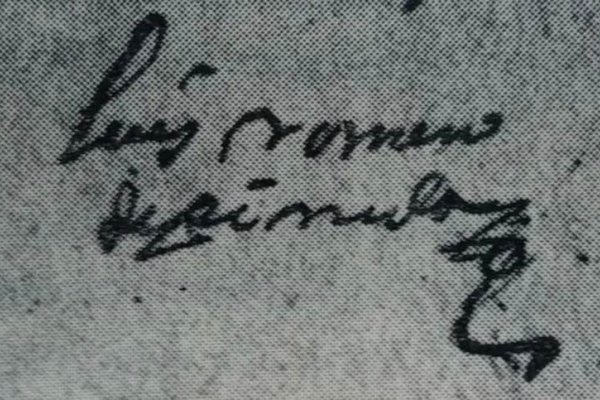 luis romero
de pineda